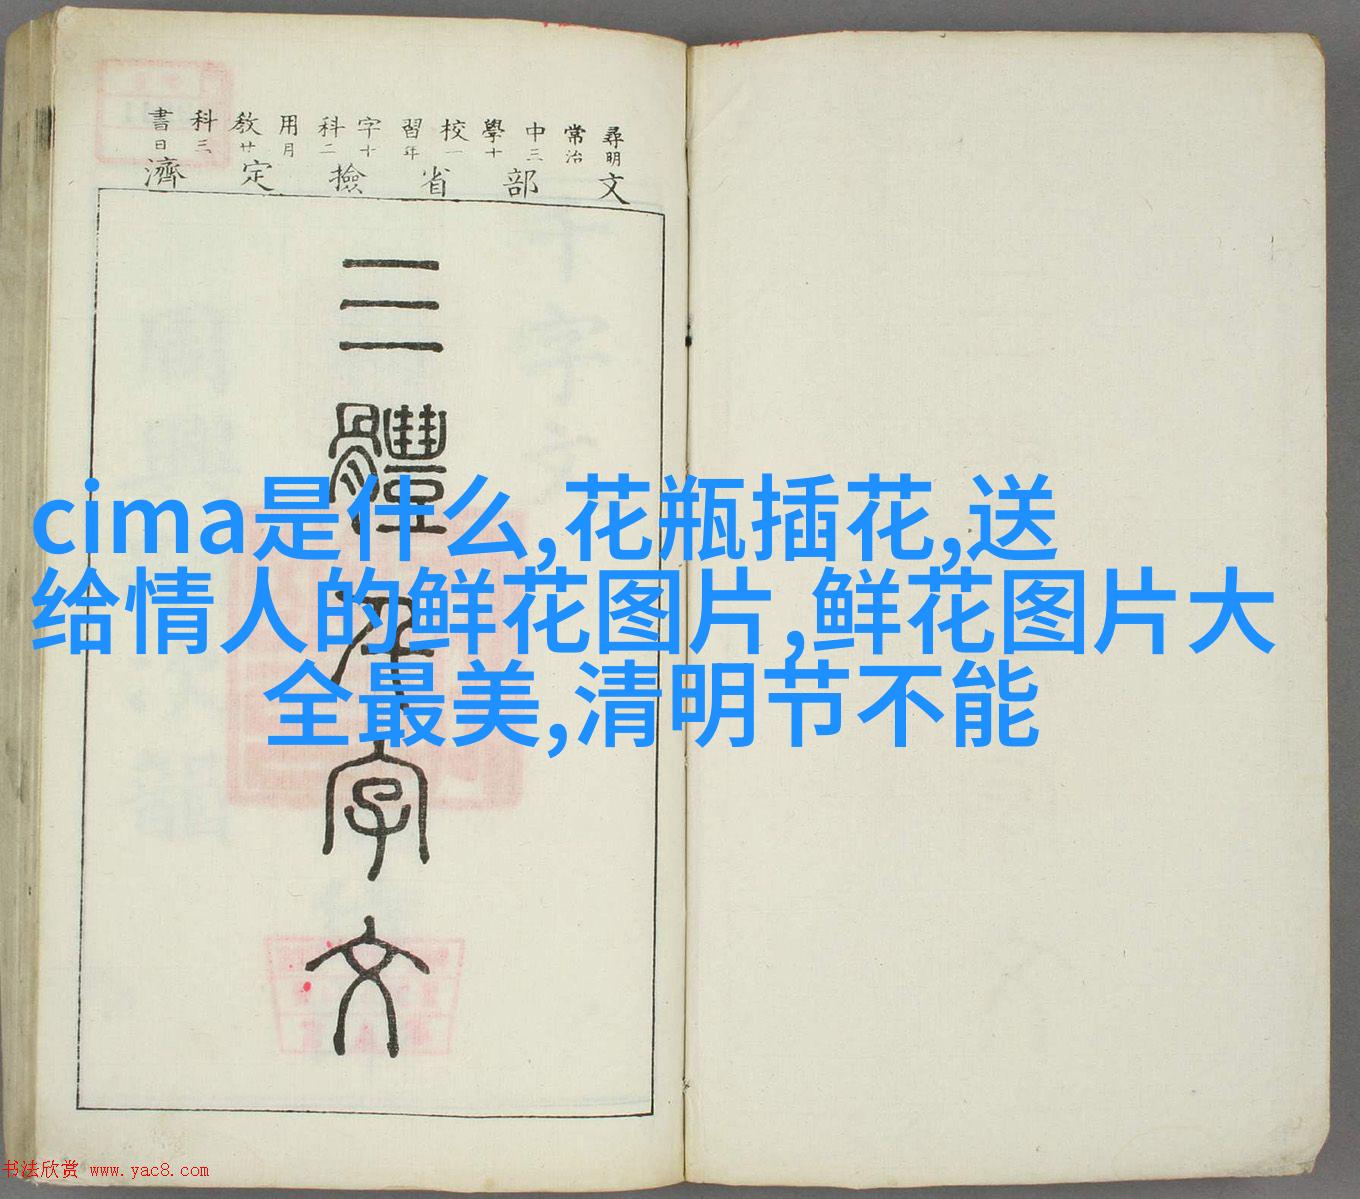 書科教用科字習校學中常尋
日三廿月二十年一十三治明
濟定撿省部文
三體千字文
cima是什么,花瓶插花,送
给情人的鲜花图片,鲜花图片大
全最美,清明节不能
书法欣赏 www.yac8.com